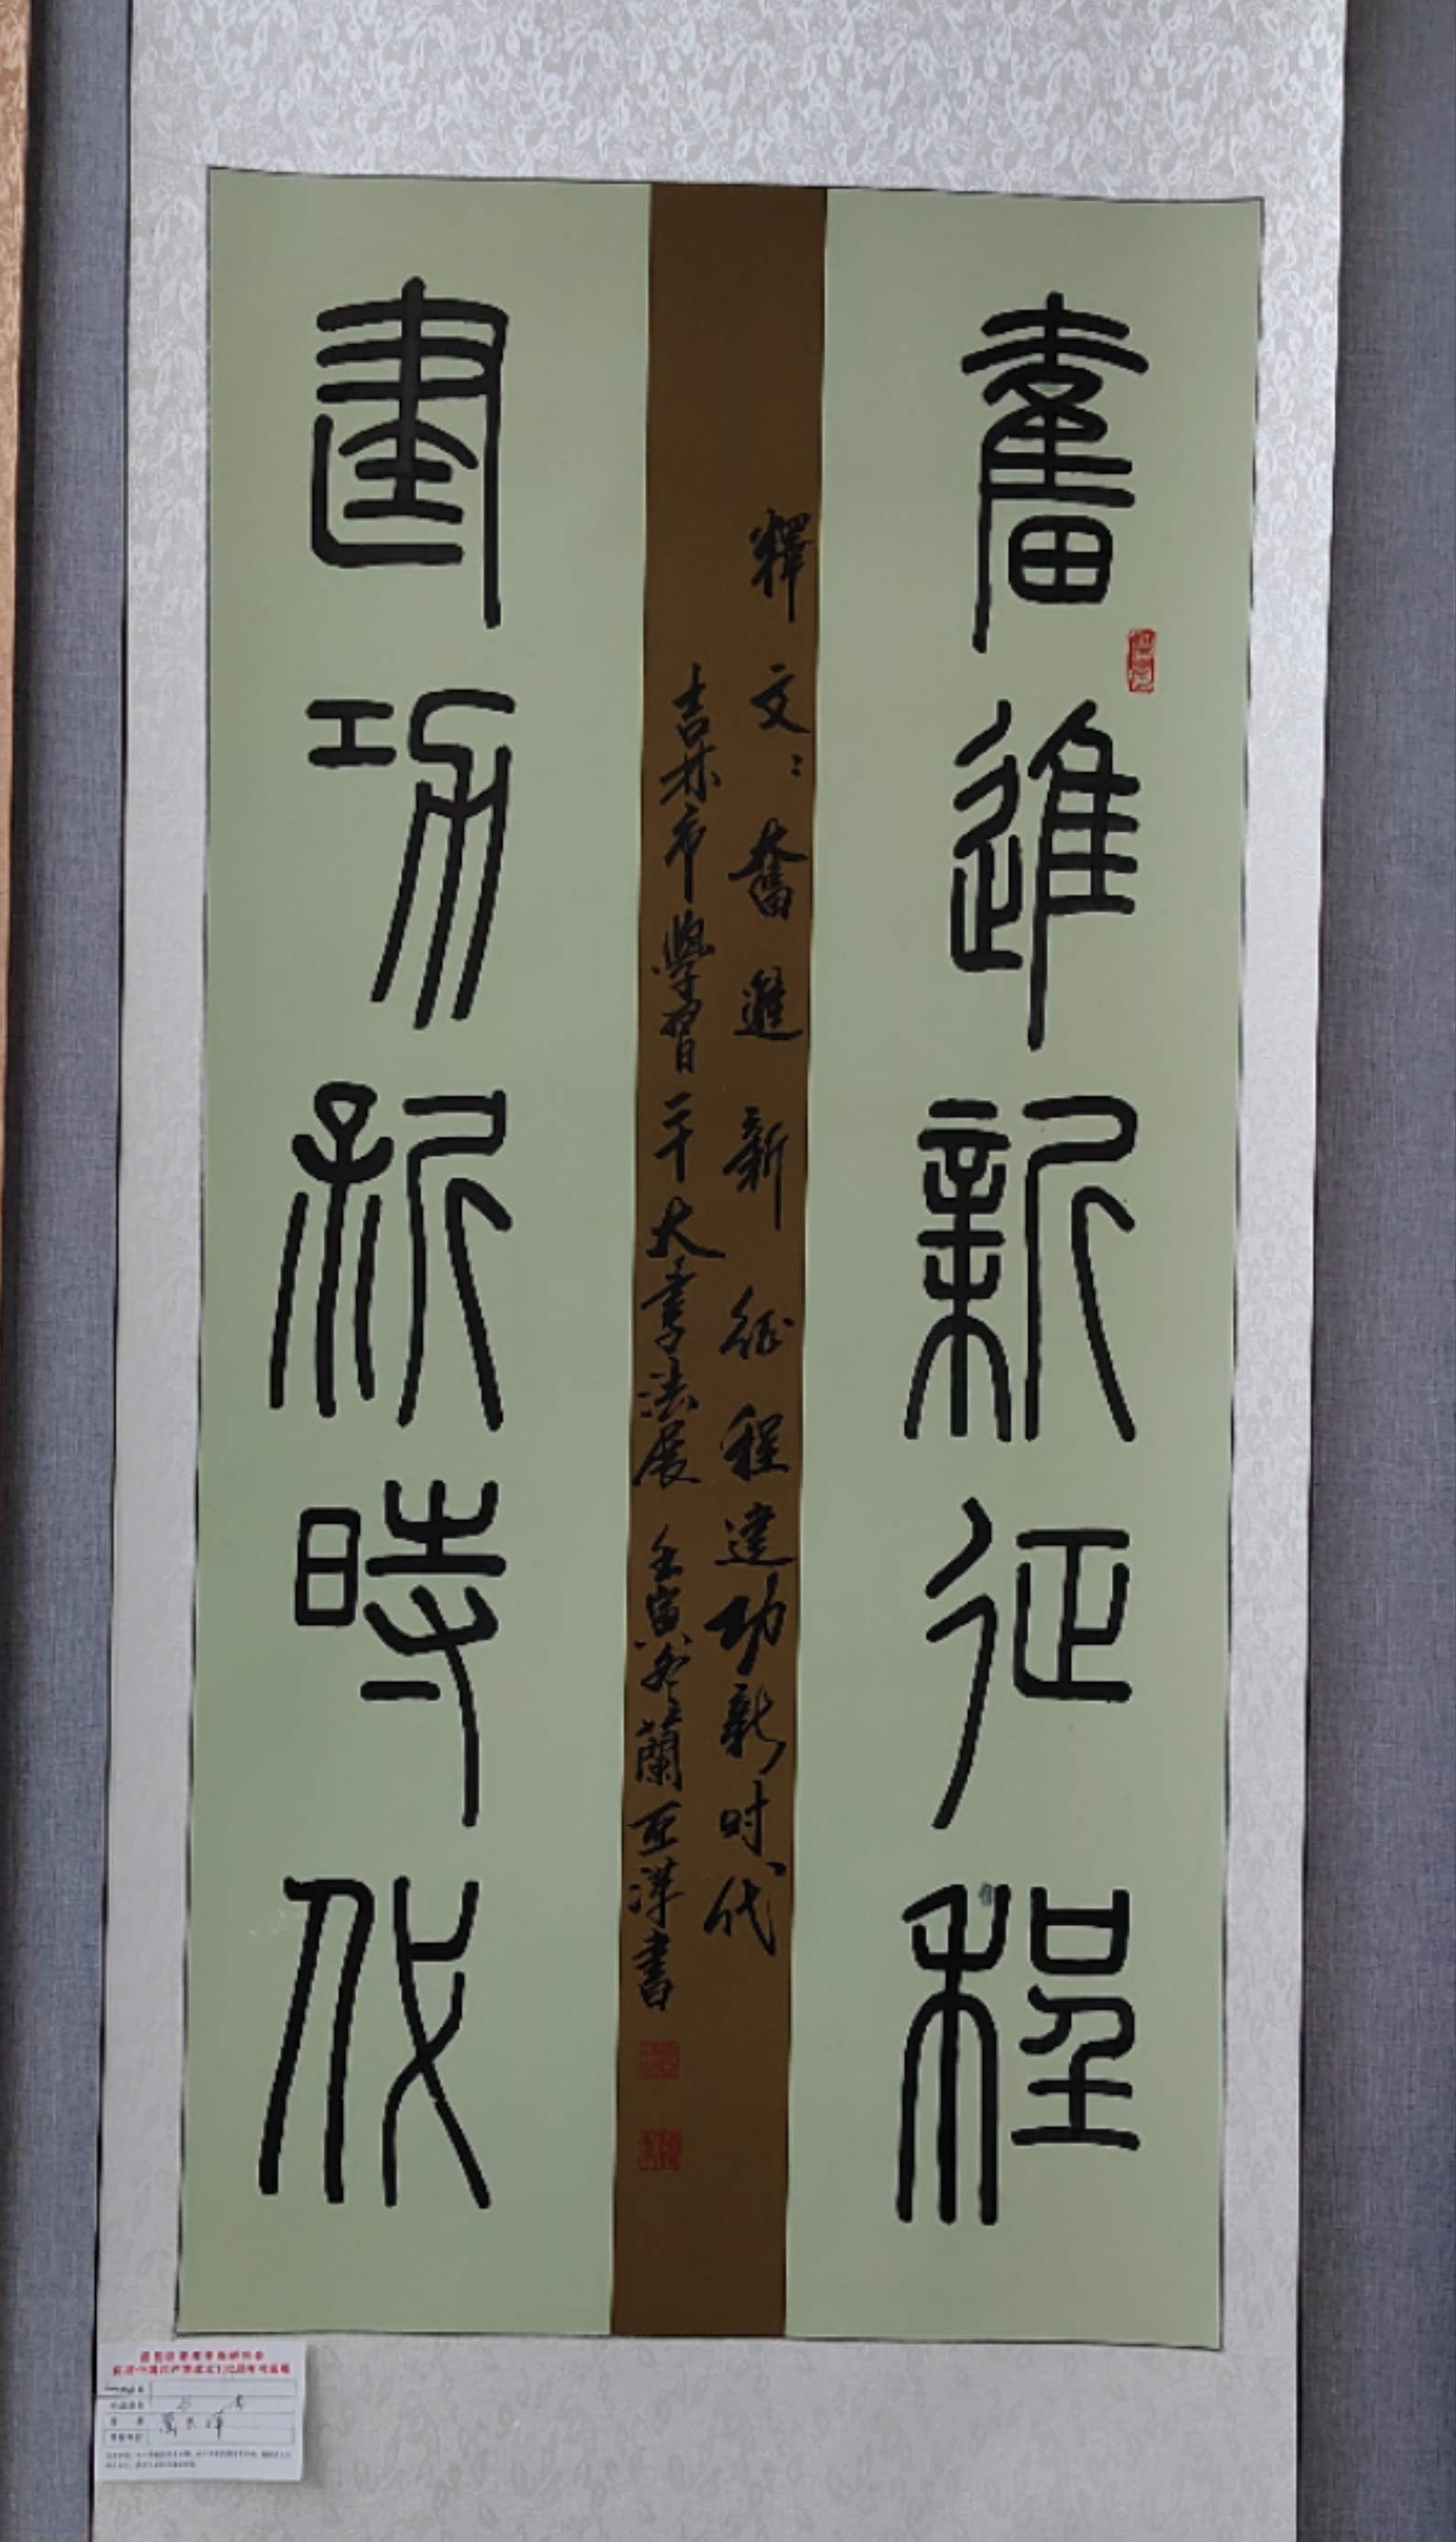 奮進新征程
釋文：奮進新征程建功新时代
吉林市學習二十大書法展 壬寅冬蘭亚漢書
建功新時代